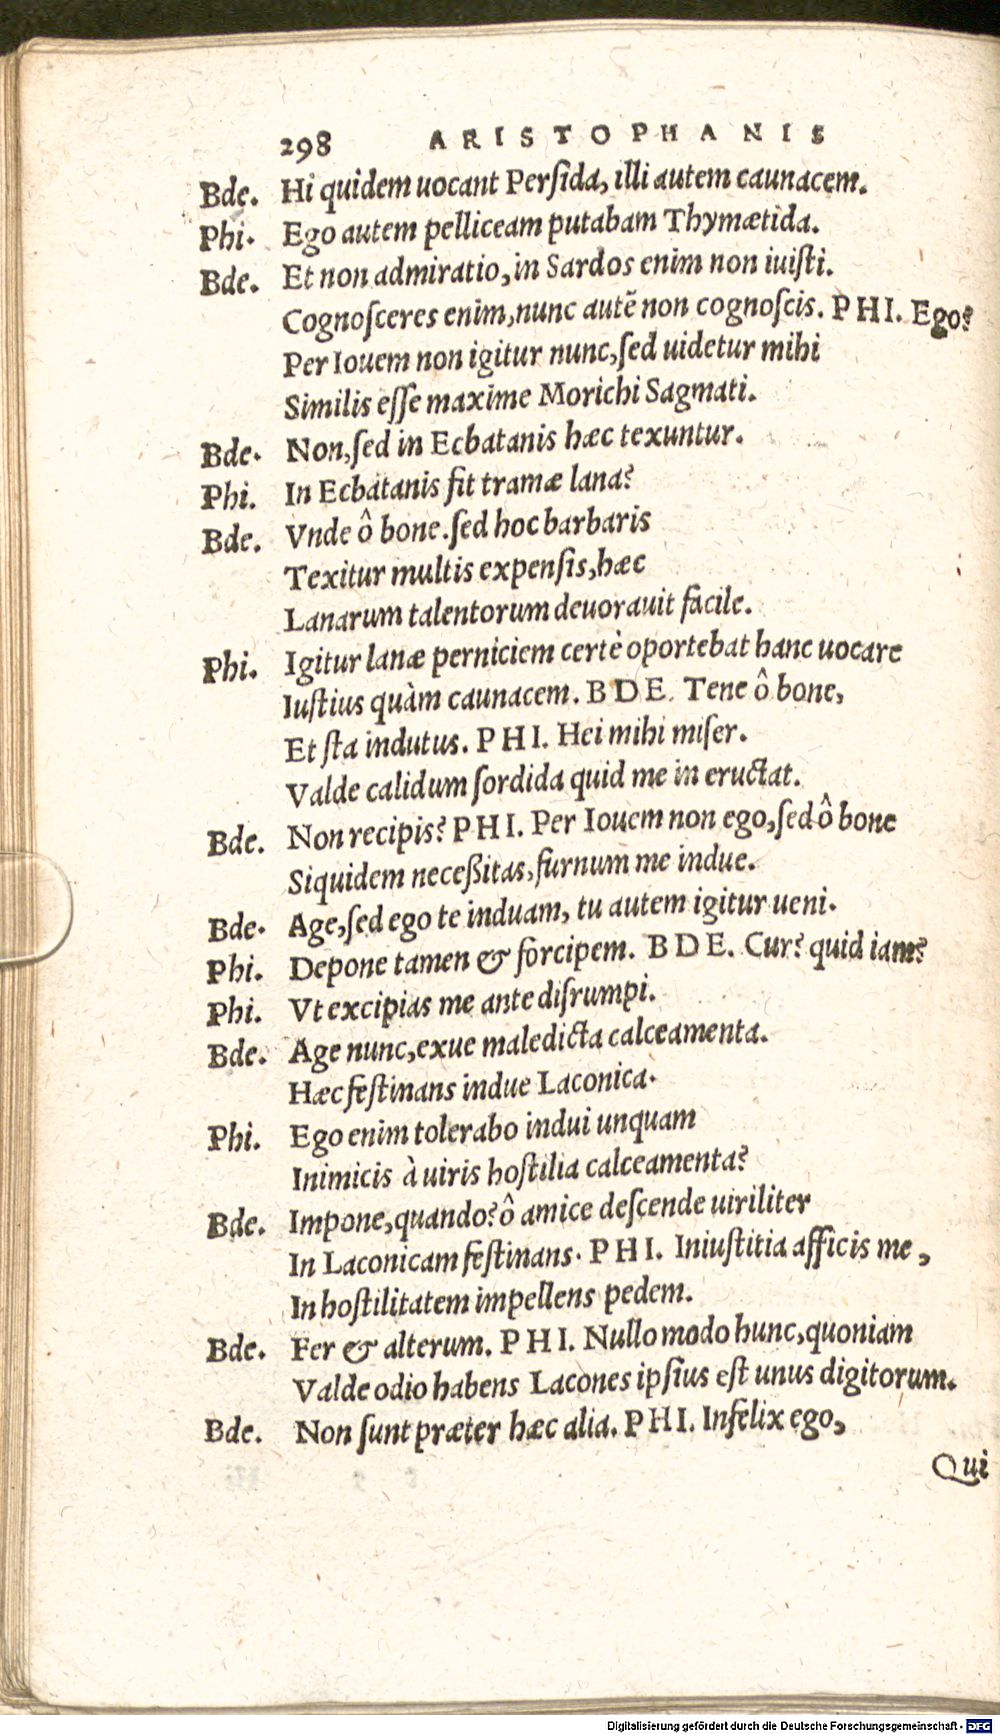 298 ARISTOPHANIS
Bde. Hi quidem uocant Persida, illi autem caunacem.
Phi. Ego autem pelliceam putabam Thymætida.
Bde. Et non admiratio, in Sardos enim non iuisti.
Cognosceres enim, nunc autẽ non cognoscis. PHI. Ego?
Per Iouem non igitur nunc, sed uidetur mihi
Similis esse maxime Morichi Sagmati.
Bde. Non, sed in Ecbatanis hæc texuntur.
Phi. In Ecbatanis fit tramæ lana?
Bde. Vnde ô bone. sed hoc barbaris
Texitur multis expensis, hæc
Lanarum talentorum deuorauit facile.
Phi. Igitur lanæ perniciem certè oportebat hanc uocare
Iustius quàm caunacem. BDE. Tene ô bone,
Et sta indutus. PHI. Hei mihi miser.
Valde calidum sordida quid me in eructat.
Bde. Non recipis? PHI. Per Iouem non ego, sed ô bone
Siquidem necessitas, furnum me indue.
Bde. Age, sed ego te induam, tu autem igitur ueni.
Phi. Depone tamen & forcipem. BDE. Cur? quid iam?
Phi. Vt excipias me ante disrumpi.
Bde. Age nunc, exue maledicta calceamenta.
Hæc festinans indue Laconica.
Phi. Ego enim tolerabo indui unquam
Inimicis à uiris hostilia calceamenta?
Bde. Impone, quando? ô amice descende uiriliter
In Laconicam festinans. PHI. Iniustitia afficis me,
In hostilitatem impellens pedem.
Bde. Fer & alterum. PHI. Nullo modo hunc, quoniam
Valde odio habens Lacones ipsius est unus digitorum.
Bde. Non sunt præter hæc alia. PHI. Infelix ego,
Qui
Digitalisierung gefördert durch die Deutsche Forschungsgemeinschaft - DFG